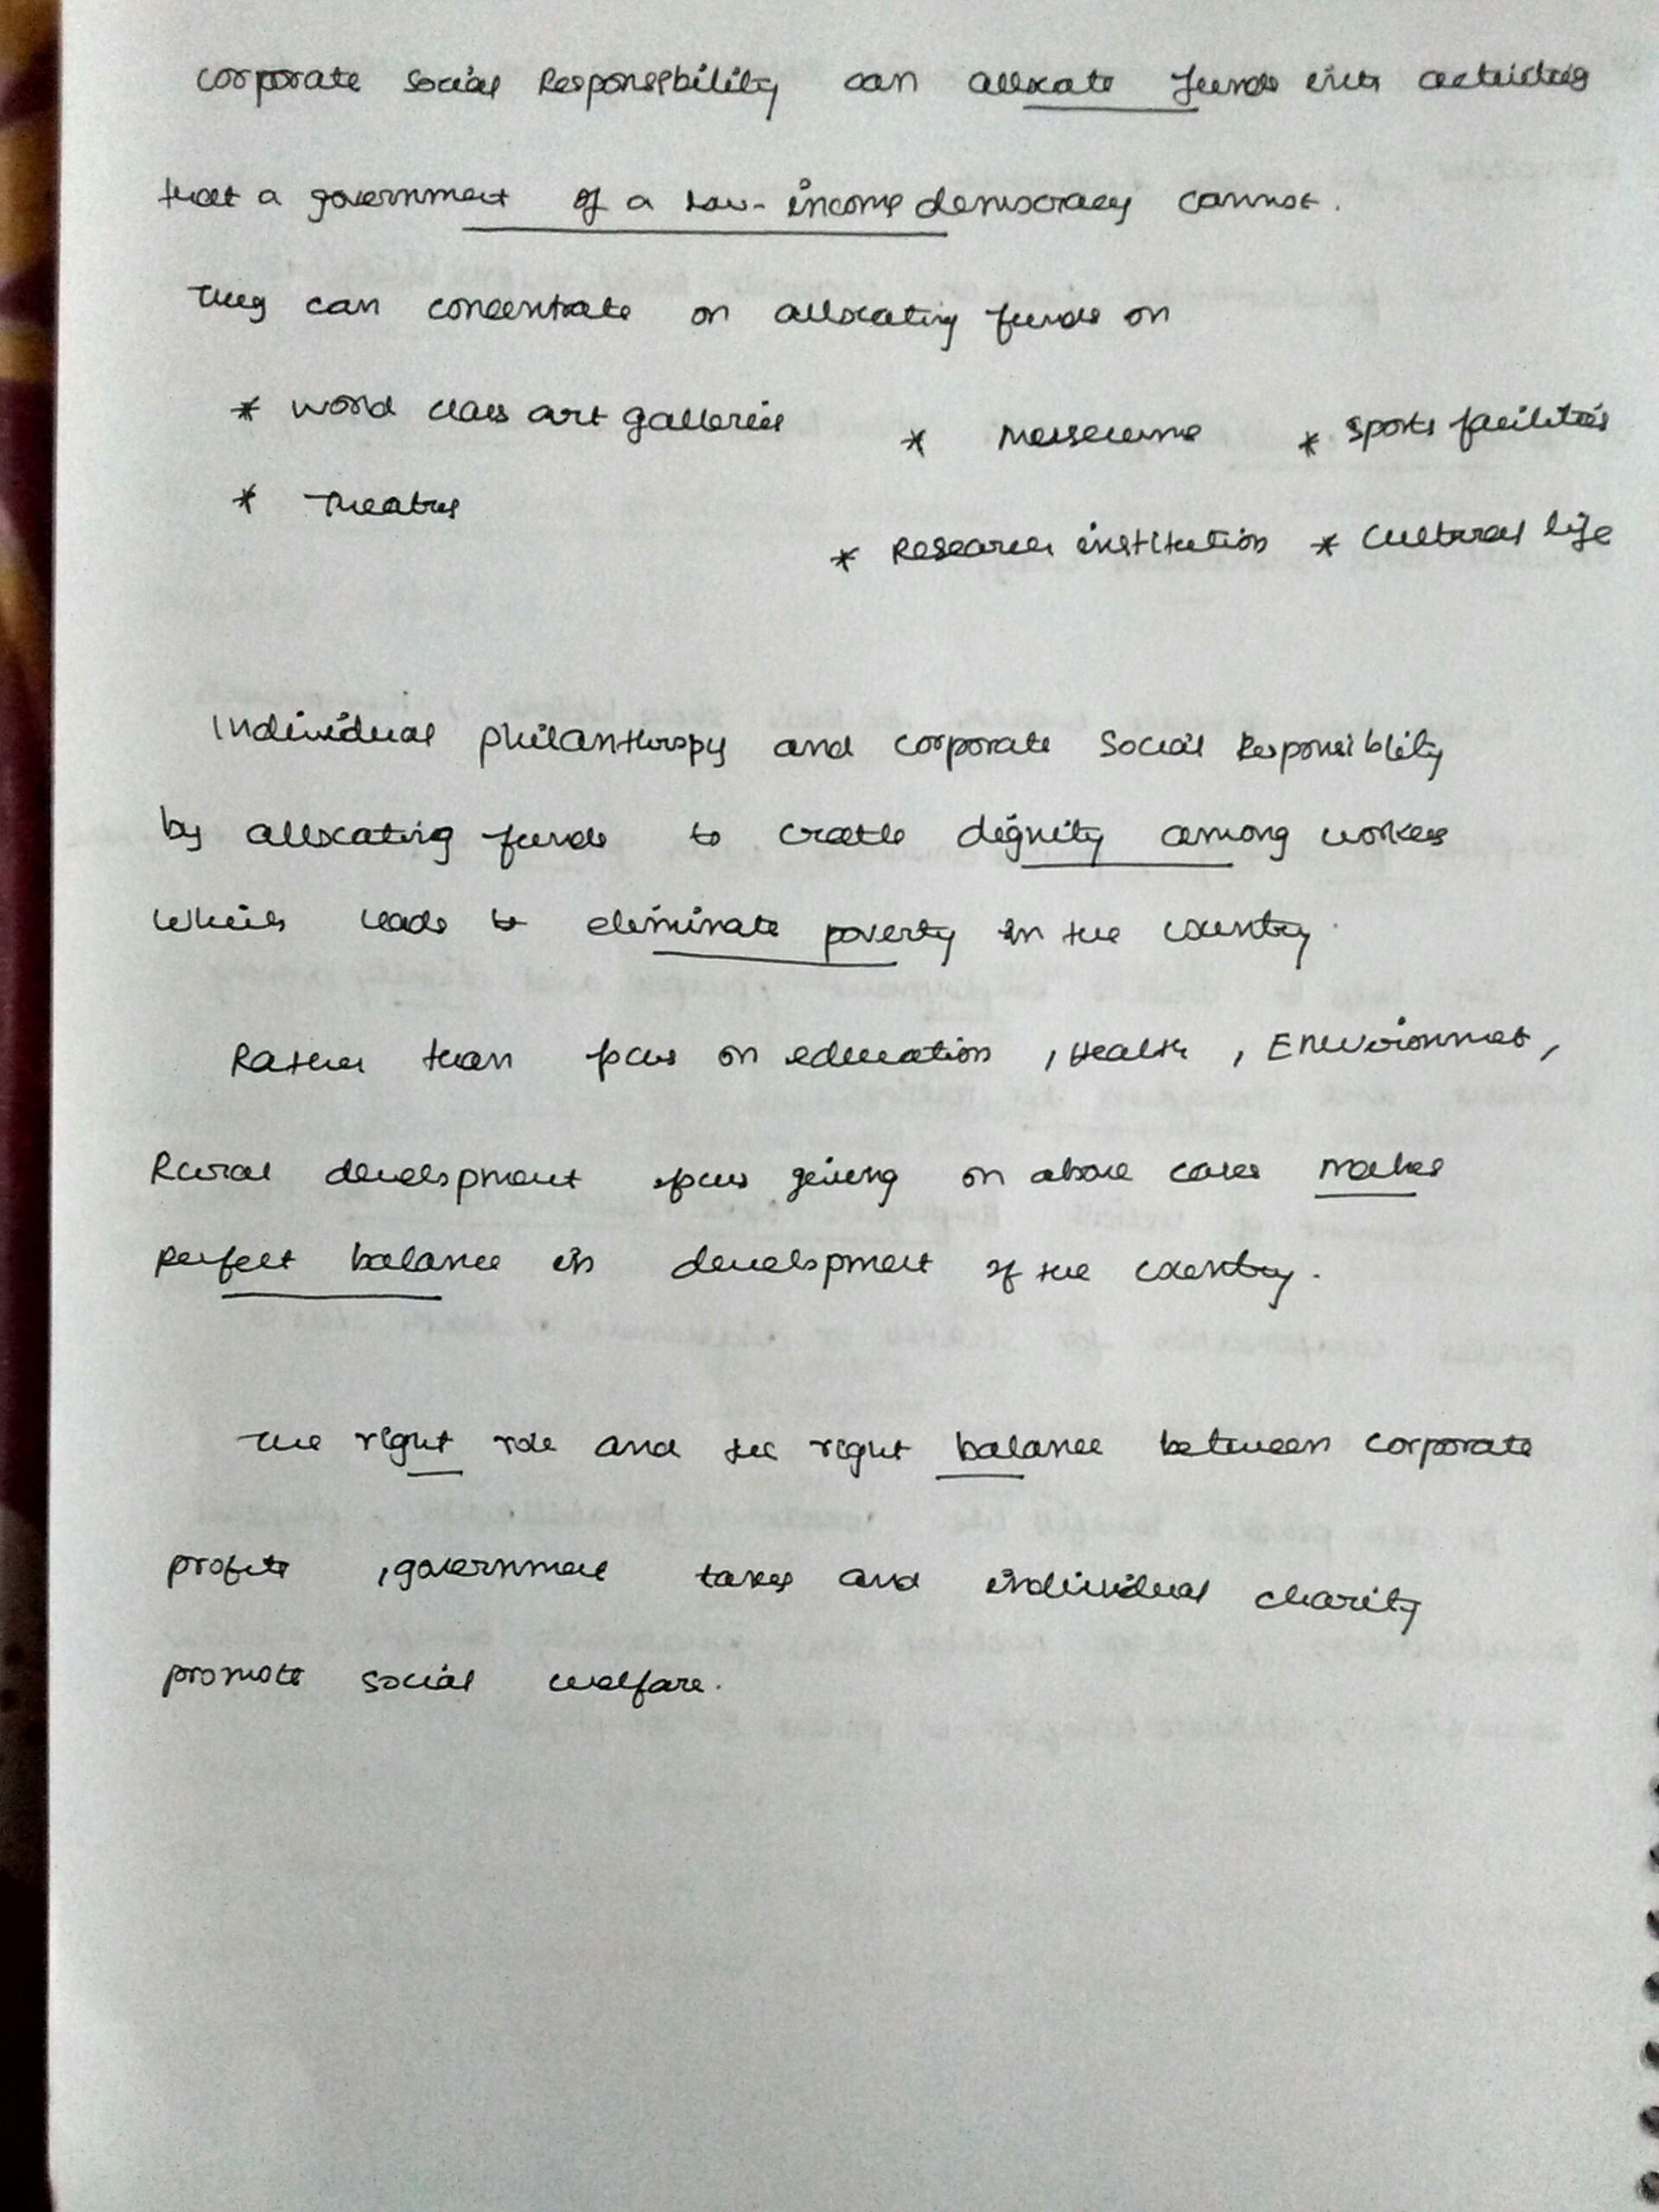 Corporate Social Responsibility can allocate funds into activities
that a government of a low-income democracy cannot.
They can concentrate on allocating funds on
* World class art galleries * Museums * Sports facilities
* Theatres
* Research institution * Cultural life
Individual philanthropy and corporate Social Responsiblity
by allocating funds to create dignity among workers
which leads to eliminate poverty in the country.
Rather than focus on education, Health, Environmet,
Rural development focus giving on above cases makes
perfect balance in development of the country.
The right role and the right balance between corporate
profits, government taxes and individual charity
promote social welfare.